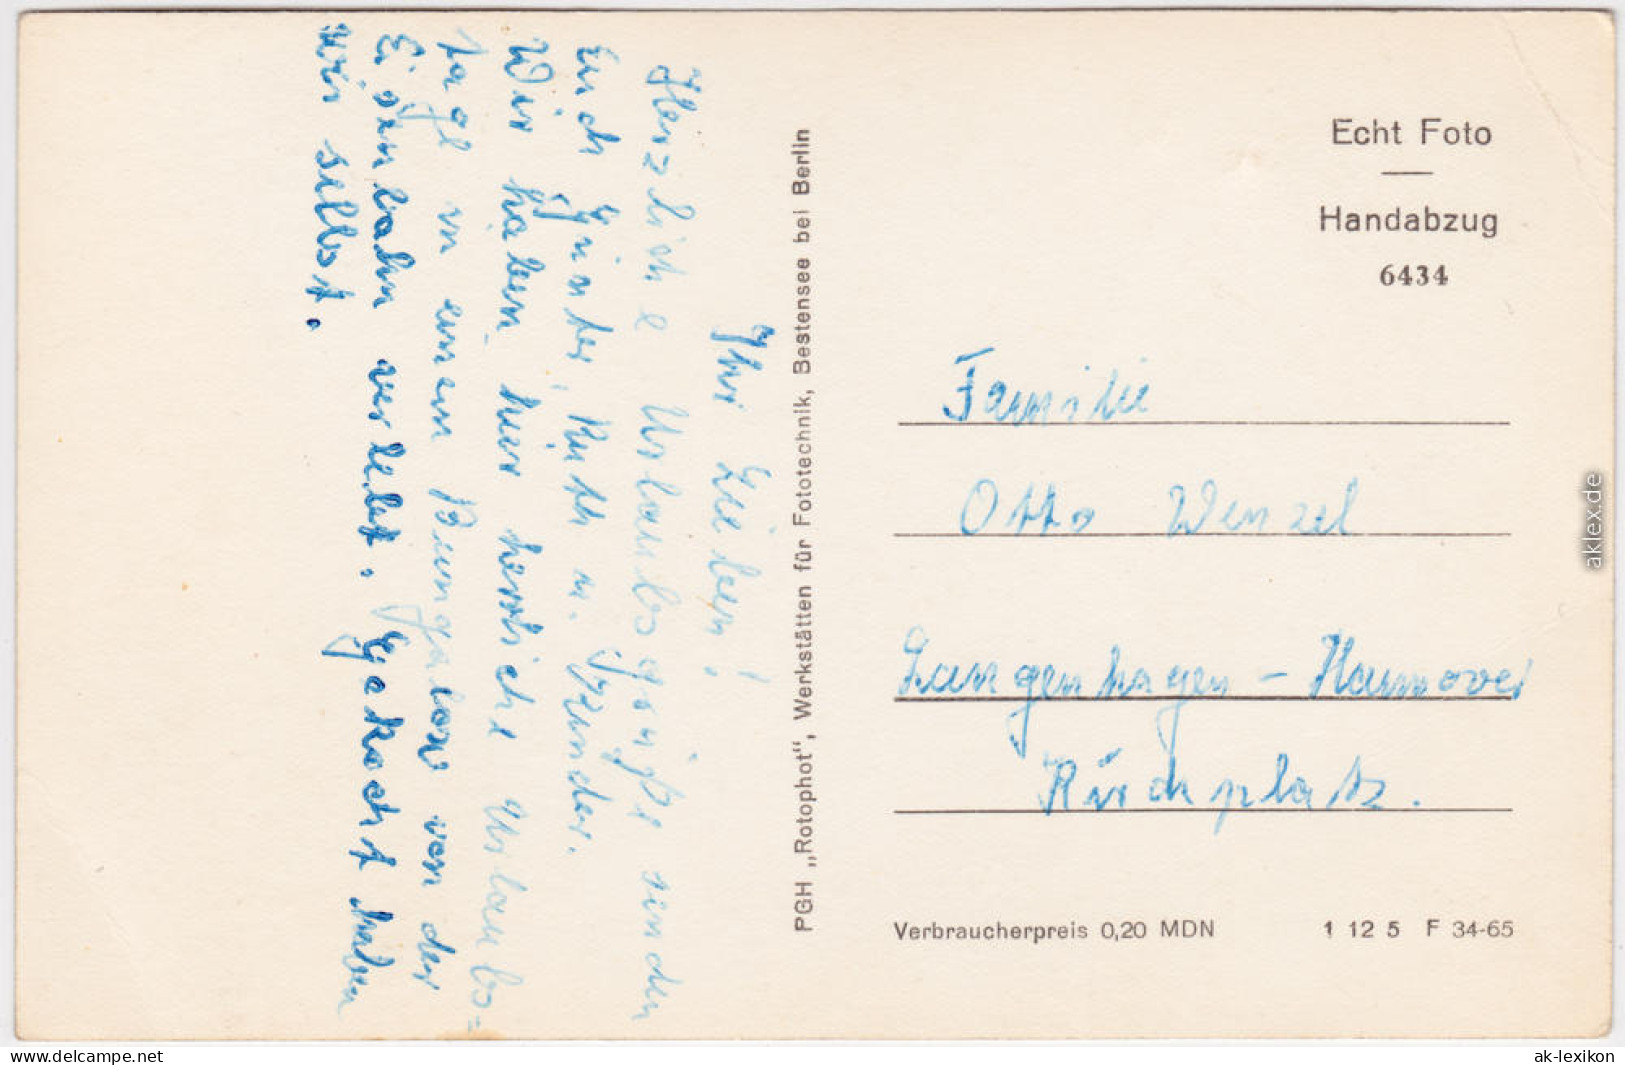 Ihr Lieben!
Herzliche Urlaubsgrüße senden
Euch Günter, Ruth u. Kinder.
Wir haben hier herrliche Urlaubs=
tage in einem Bungalow von der
Eisenbahn verlebt. Gekocht haben
wir selbst.
PGH „Rotophot“, Werkstätten für Fototechnik, Bestensee bei Berlin
Echt Foto
Handabzug
6434
Familie
Otto Wenzel
Langenhagen - Hannover
Kirchplatz.
Verbraucherpreis 0,20 MDN 1 12 5 F 34-65
aklex.de
www.delcampe.net
ak-lexikon